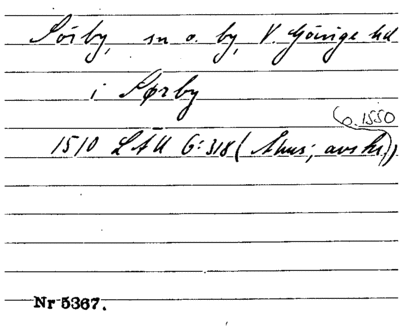 Sörby, sn o. by, V. Göinge hd
i Sørby
o. 1550
1510 LÄU 6:318 (Åhus; avskr.)
Nr 5367.